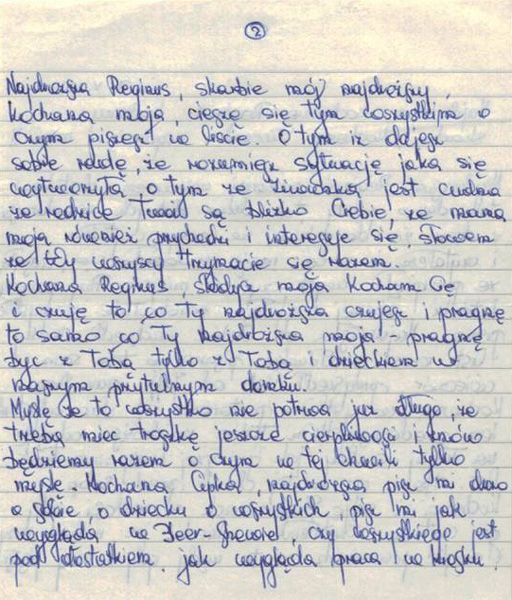 2
Najdroższa Reginus, skarbie mój najdroższy,
kochana moja, cieszę się tym wszystkim o
czym piszesz w liście. O tym iż dajesz
sobie radę, że rozumiesz sytuację jaka się
wytworzyła, o tym że jest cudna
że rodzice Twoi są blizko Ciebie, że mama
moja również przychodzi i interesuje się, słowem
że Wy wszyscy trzymacie się razem.
Kochana Reginus, słodya moja Kocham Cię
i czuję to co Ty najdroższa czujesz i pragnę
to samo co Ty najdroższa moja pragnę
być z Tobą tylko z Tobą i dzieckiem w
naszym przytulnym domku.
Myślę że to wszystko nie potrwa już długo, że
trzeba mieć troszkę jeszcze cierpliwości i znów
będziemy razem o czym w tej chwili tylko
myślę. Kochana najdroższa pisz mi dużo
o sobie, o dziecku o wszystkich, pisz mi jak
wygląda w Beer-Shewie, czy wszystkiego jest
pod dostatkiem, jak wygląda praca w kiosku.